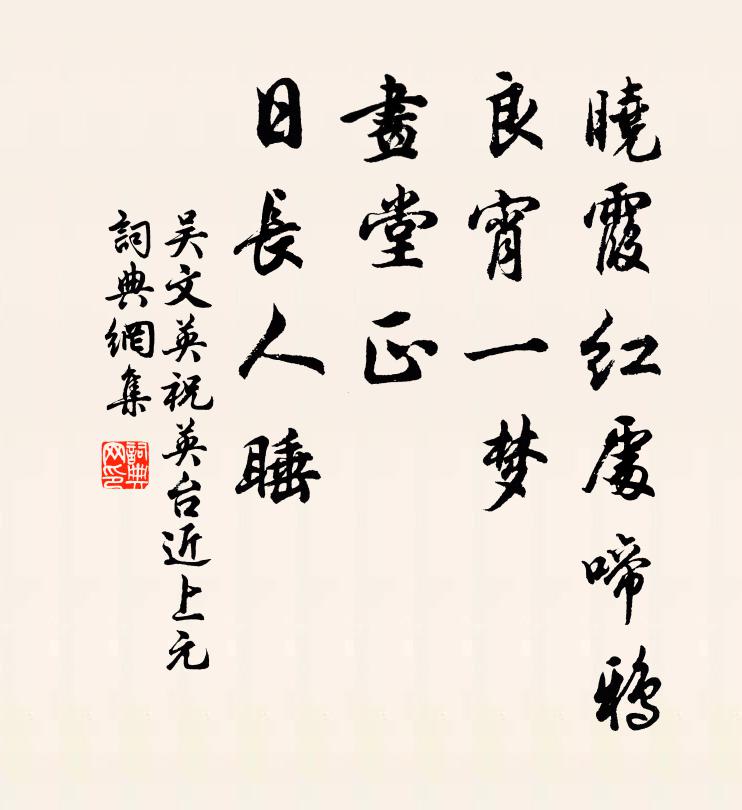 曉霞紅處啼鴉
良宵一梦
畫堂正
日長人睡
吴文英祝英台近上元
詞典網集
詞典網印